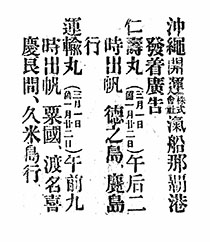 沖繩開運株式會社汽船那覇港
發着廣告
仁壽丸(三月一日舊一月廿二日)午后二
時出帆 德之島、鹿島
行
運輸丸(三月一日舊一月廿二日)午前九
時出帆 粟國 渡名喜
慶良間、久米島行、